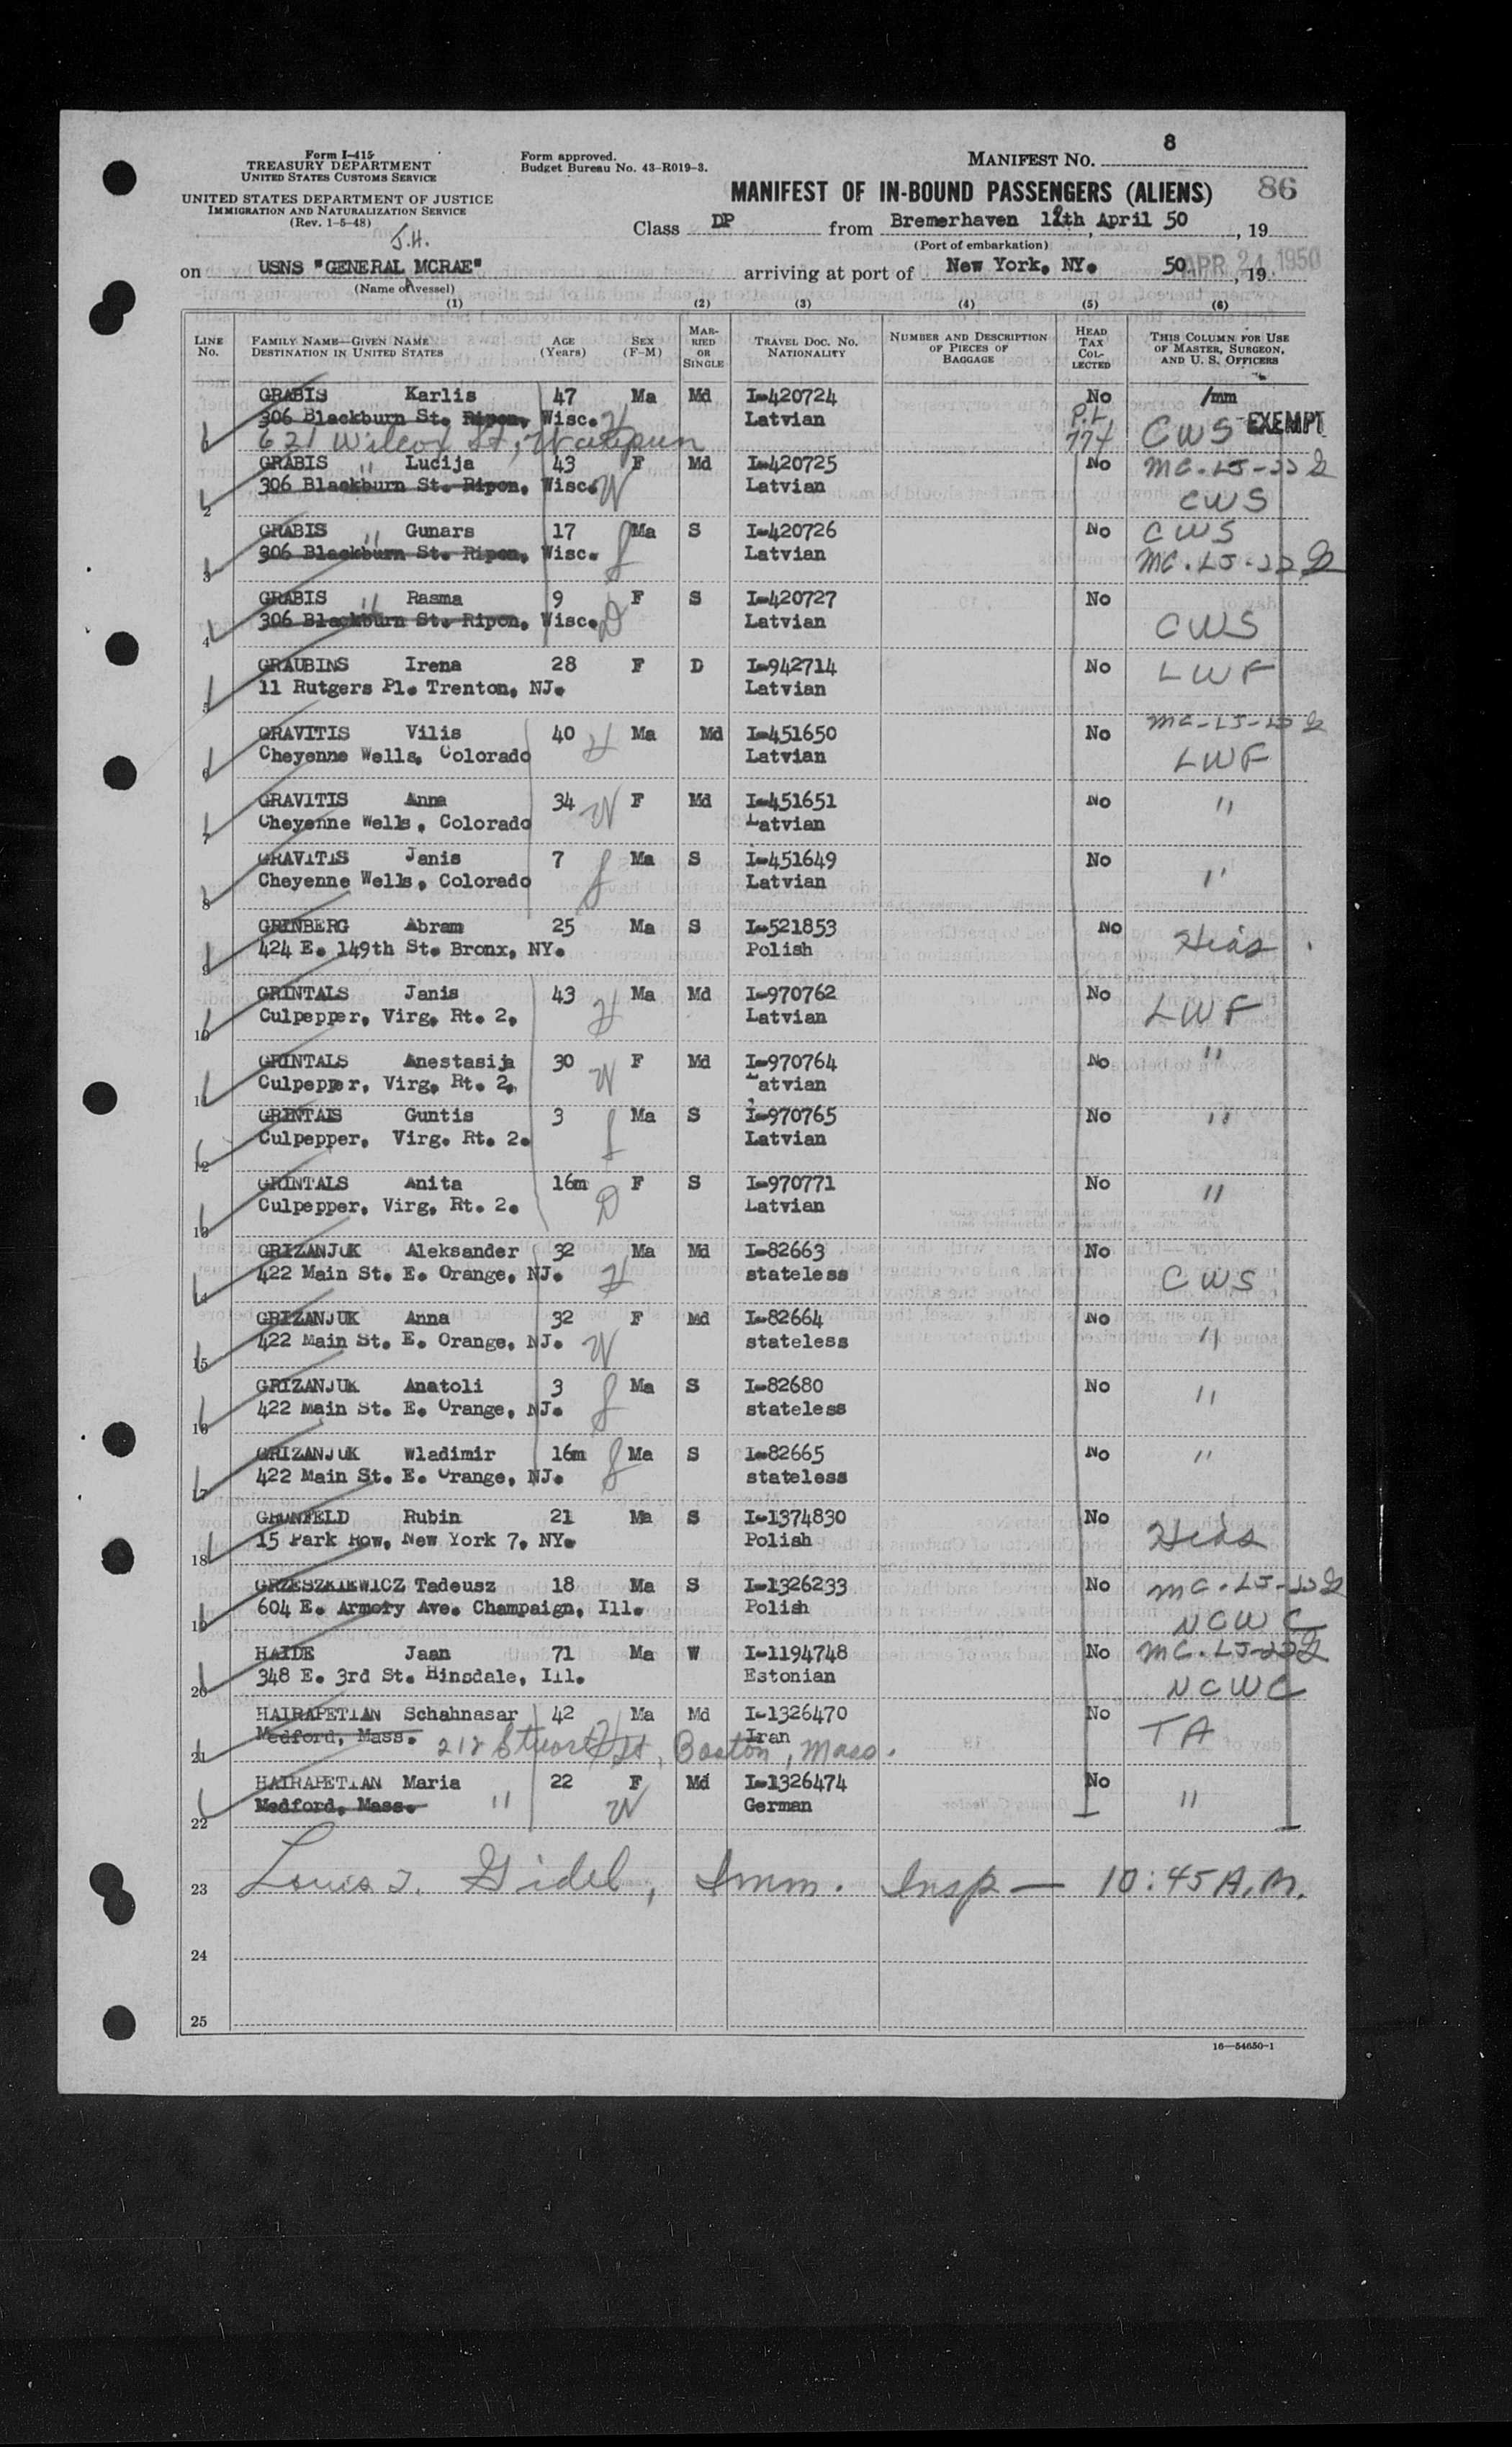 Form I-415
TREASURY DEPARTMENT
UNITED STATES CUSTOMS SERVICE
UNITED STATES DEPARTMENT OF JUSTICE
IMMIGRATION AND NATURALIZATION SERVICE
(Rev. 1-5-48)
J.H.
Form approved.
Budget Bureau No. 43-R019-3.
MANIFEST NO. 8
MANIFEST OF IN-BOUND PASSENGERS (ALIENS) 86
Class DP from Bremerhaven 12th April 50, 19
(Port of embarkation)
on USNS "GENERAL MCRAE" arriving at port of New York, NY. 50, 19 APR 24 1950
(Name of vessel)
(1) (2) (3) (4) (5) (6)
LINE No. FAMILY NAME—GIVEN NAME DESTINATION IN UNITED STATES AGE (Years) SEX (F-M) MARRIED OR SINGLE TRAVEL DOC. NO. NATIONALITY NUMBER AND DESCRIPTION OF PIECES OF BAGGAGE HEAD TAX COLLECTED THIS COLUMN FOR USE OF MASTER, SURGEON, AND U. S. OFFICERS
GRABIS Karlis 47 Ma Md I-420724 No /mm
306 Blackburn St. Ripon, Wisc. H Latvian P.L 774 CWS EXEMPT
621 Wilcox St, Waupun
GRABIS Lucija 43 F Md I-420725 No MC-LJ-22
2 306 Blackburn St. Ripon, Wisc. " W Latvian CWS
GRABIS Gunars 17 Ma S I-420726 No CWS
3 306 Blackburn St. Ripon, Wisc. " Latvian MC.LJ-22
GRABIS Rasma 9 F S I-420727 No
4 306 Blackburn St. Ripon, Wisc. " D Latvian CWS
GRAUBINS Irena 28 F D I-942714 No LWF
5 11 Rutgers Pl. Trenton, NJ. Latvian
GRAVITIS Vilis 40 H Ma Md I-451650 No MC-LJ-22
6 Cheyenne Wells, Colorado Latvian LWF
GRAVITIS Anna 34 W F Md I-451651 No "
7 Cheyenne Wells, Colorado Latvian
GRAVITIS Janis 7 Ma S I-451649 No
8 Cheyenne Wells, Colorado Latvian "
GRINBERG Abram 25 Ma S I-521853 No Hias
9 424 E. 149th St. Bronx, NY. Polish
GRINTALS Janis 43 Ma Md I-970762 No LWF
10 Culpepper, Virg. Rt. 2, H Latvian
GRINTALS Anestasija 30 F Md I-970764 No "
11 Culpepper, Virg. Rt. 2, W Latvian
GRINTALS Guntis 3 Ma S I-970765 No "
12 Culpepper, Virg. Rt. 2. Latvian
GRINTALS Anita 16m F S I-970771 No "
13 Culpepper, Virg. Rt. 2. D Latvian
GRIZANJUK Aleksander 32 Ma Md I-82663 No
14 422 Main St. E. Orange, NJ. H stateless CWS
GRIZANJUK Anna 32 F Md I-82664 No
15 422 Main St. E. Orange, NJ. W stateless "
GRIZANJUK Anatoli 3 Ma S I-82680 No
16 422 Main St. E. Orange, NJ. stateless "
GRIZANJUK Wladimir 16m Ma S I-82665 No "
17 422 Main St. E. Orange, NJ. stateless
GRUNFELD Rubin 21 Ma S I-1374830 No
18 15 Park Row, New York 7, NY. Polish Hias
GRZESZKIEWICZ Tadeusz 18 Ma S I-1326233 No MC.LJ-22
19 604 E. Armory Ave. Champaign, Ill. Polish NCWC
HAIDE Jaan 71 Ma W I-1194748 No MC.LJ-22
20 348 E. 3rd St. Hinsdale, Ill. Estonian NCWC
HAIRAPETIAN Schahnasar 42 Ma Md I-1326470 No TA
21 Medford, Mass. 212 Stuart St, Boston, Mass. H Iran
HAIRAPETIAN Maria 22 F Md I-1326474 No
22 Medford, Mass. " W German "
23 Louis J. Gidel, Imm. Insp — 10:45 A.M.
24
25
16—54650-1